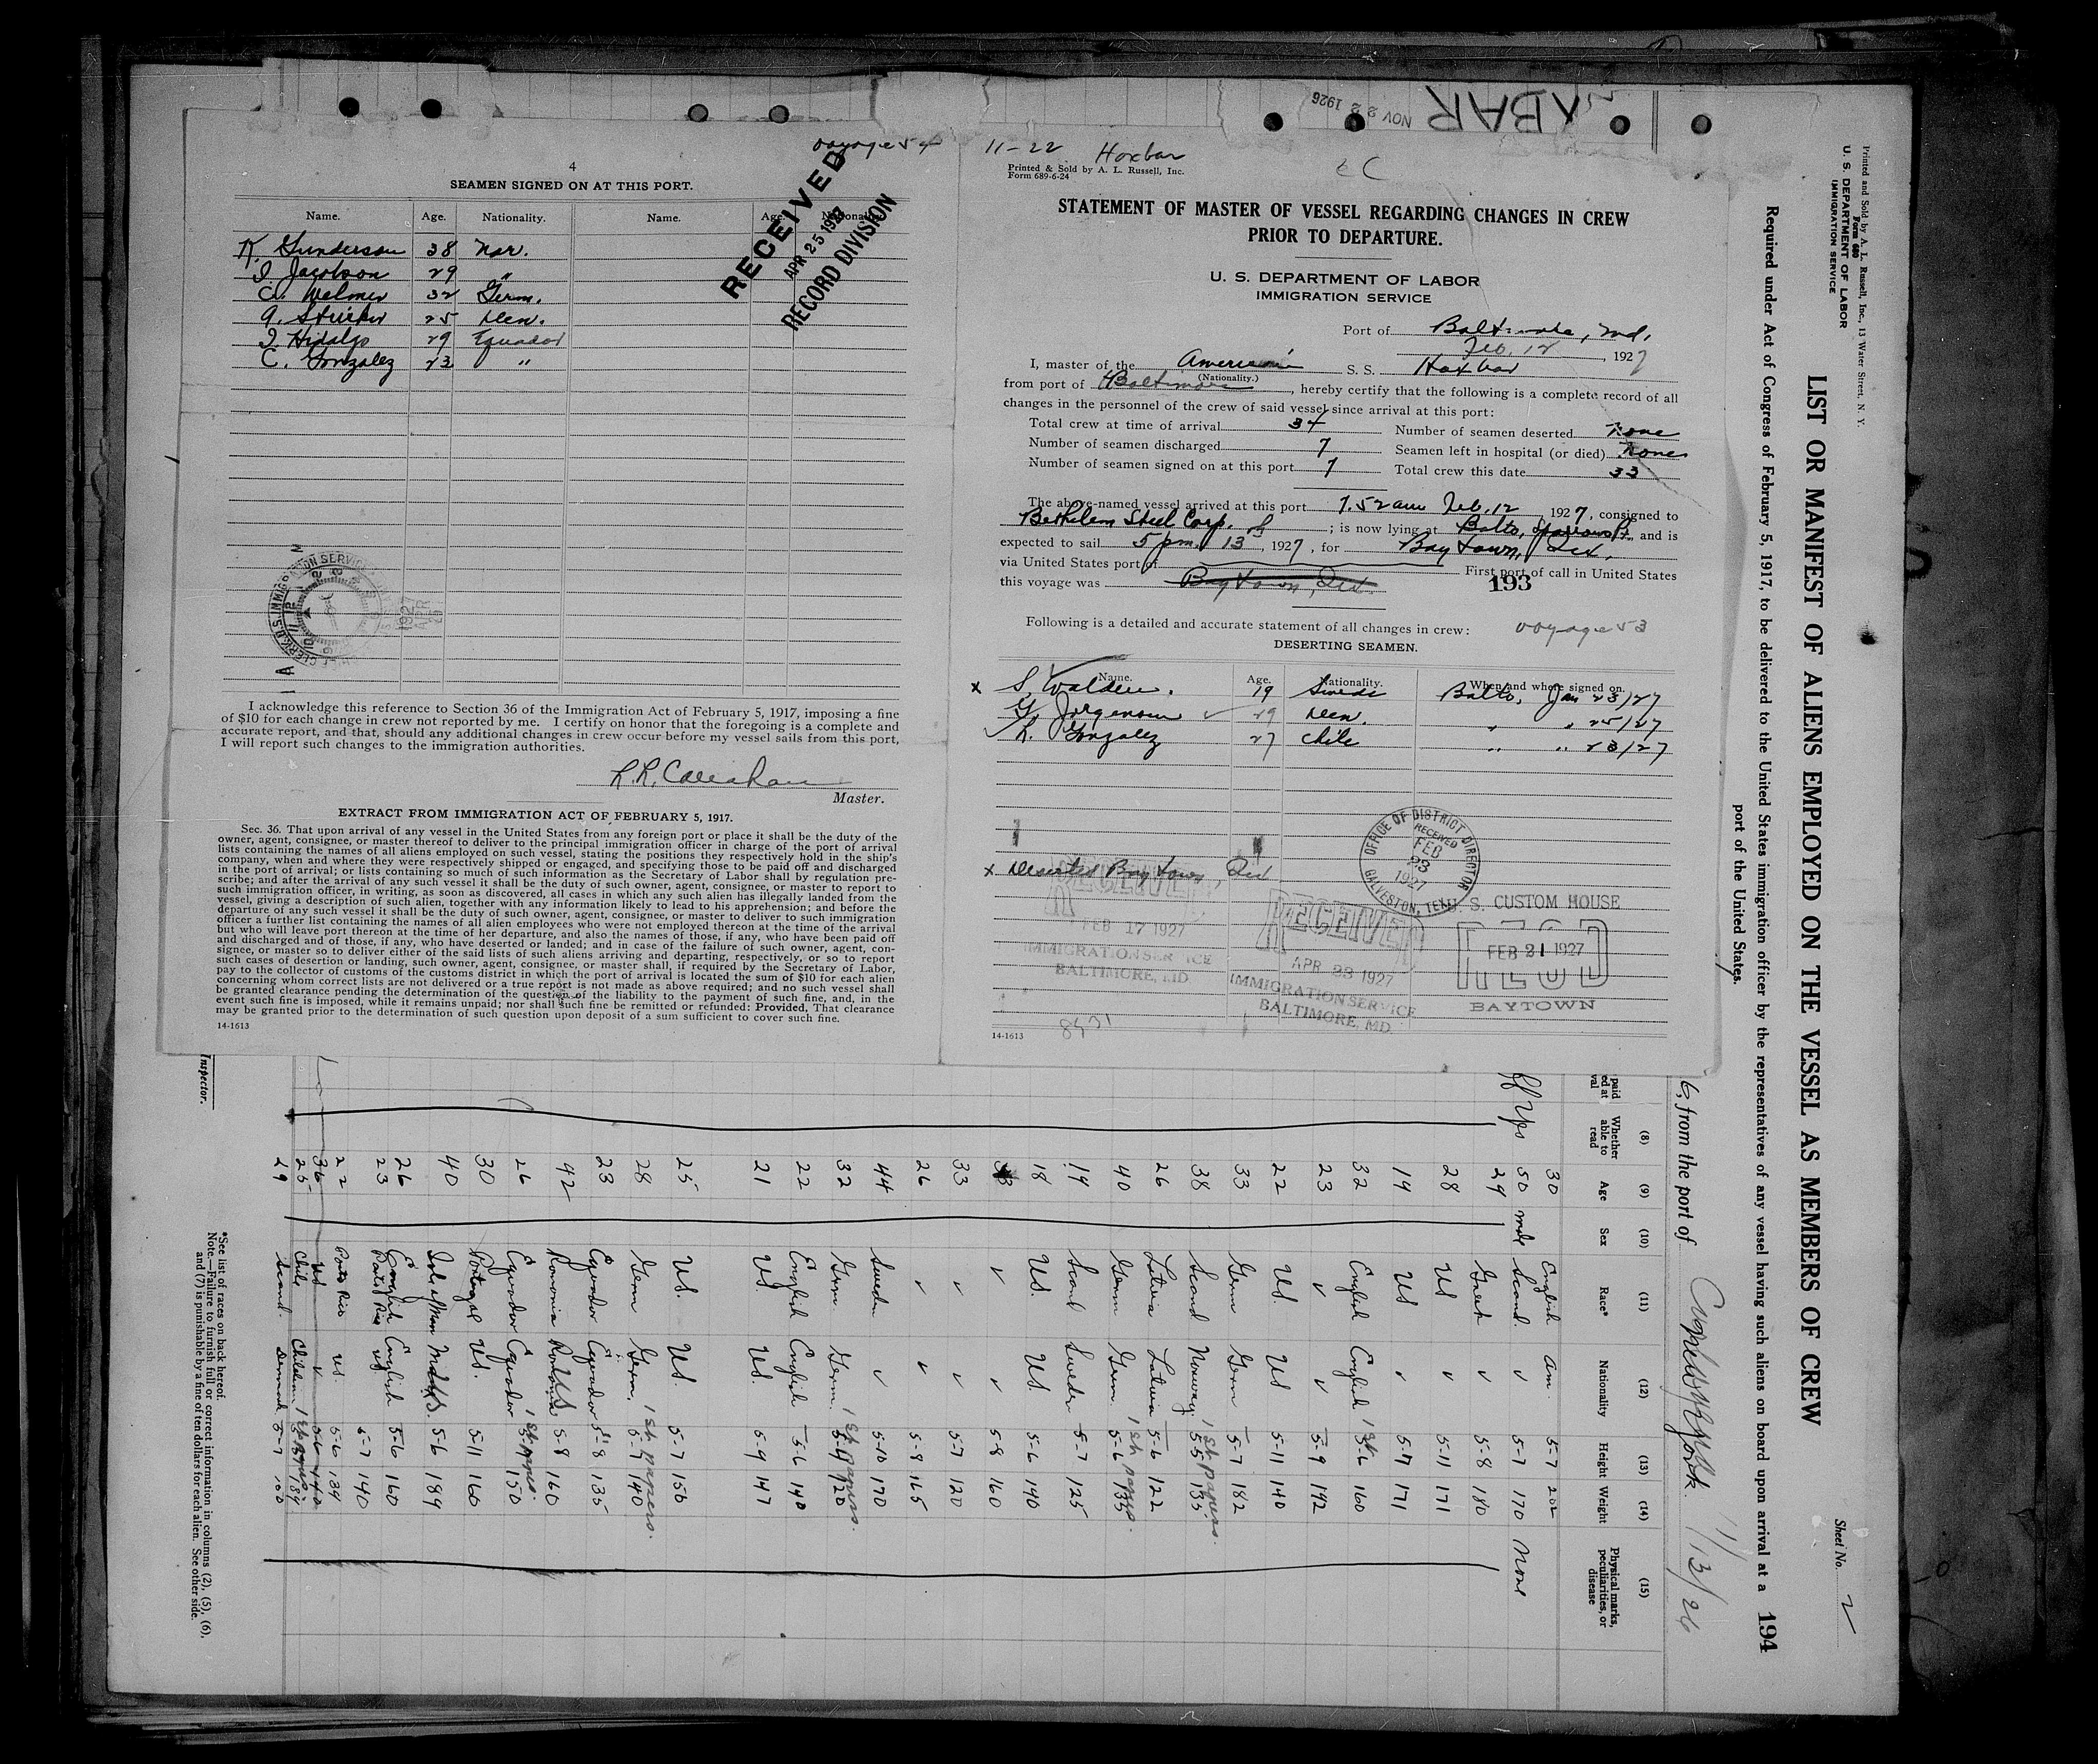 voyage 54
4
SEAMEN SIGNED ON AT THIS PORT.
Name. Age. Nationality. Name. Age. Nationality.
K. Gunderson 38 Nor.
I Jacobson 29 "
C. Welmer 32 Germ.
A. 25 Den.
I. Hidalgo 29 Equador
C. Gonzalez 23 "
RECEIVED
APR 25 1927
RECORD DIVISION
I acknowledge this reference to Section 36 of the Immigration Act of February 5, 1917, imposing a fine
of $10 for each change in crew not reported by me. I certify on honor that the foregoing is a complete and
accurate report, and that, should any additional changes in crew occur before my vessel sails from this port,
I will report such changes to the immigration authorities.
Master.
EXTRACT FROM IMMIGRATION ACT OF FEBRUARY 5, 1917.
Sec. 36. That upon arrival of any vessel in the United States from any foreign port or place it shall be the duty of the
owner, agent, consignee, or master thereof to deliver to the principal immigration officer in charge of the port of arrival
lists containing the names of all aliens employed on such vessel, stating the positions they respectively hold in the ship's
company, when and where they were respectively shipped or engaged, and specifying those to be paid off and discharged
in the port of arrival; or lists containing so much of such information as the Secretary of Labor shall by regulation pre-
scribe; and after the arrival of any such vessel it shall be the duty of such owner, agent, consignee, or master to report to
such immigration officer, in writing, as soon as discovered, all cases in which any such alien has illegally landed from the
vessel, giving a description of such alien, together with any information likely to lead to his apprehension; and before the
departure of any such vessel it shall be the duty of such owner, agent, consignee, or master to deliver to such immigration
officer a further list containing the names of all alien employees who were not employed thereon at the time of the arrival
but who will leave port thereon at the time of her departure, and also the names of those, if any, who have been paid off
and discharged and of those, if any, who have deserted or landed; and in case of the failure of such owner, agent, con-
signee, or master so to deliver either of the said lists of such aliens arriving and departing, respectively, or so to report
such cases of desertion or landing, such owner, agent, consignee, or master shall, if required by the Secretary of Labor,
pay to the collector of customs of the customs district in which the port of arrival is located the sum of $10 for each alien
concerning whom correct lists are not delivered or a true report is not made as above required; and no such vessel shall
be granted clearance pending the determination of the question of the liability to the payment of such fine, and, in the
event such fine is imposed, while it remains unpaid; nor shall such fine be remitted or refunded: Provided, That clearance
may be granted prior to the determination of such question upon deposit of a sum sufficient to cover such fine.
14-1613
11-22 Hoxbar
Printed & Sold by A. L. Russell, Inc.
Form 689-6-24
STATEMENT OF MASTER OF VESSEL REGARDING CHANGES IN CREW
PRIOR TO DEPARTURE.
U. S. DEPARTMENT OF LABOR
IMMIGRATION SERVICE
Port of Baltimore, Md.
Feb. 12, 1927
I, master of the American S. S. Hoxbar
(Nationality.)
from port of Baltimore, hereby certify that the following is a complete record of all
changes in the personnel of the crew of said vessel since arrival at this port:
Total crew at time of arrival 34 Number of seamen deserted None
Number of seamen discharged 7 Seamen left in hospital (or died) None
Number of seamen signed on at this port 7 Total crew this date 33
The above-named vessel arrived at this port 7.52 am Feb. 12, 1927, consigned to
Bethlem Steel Corp. ; is now lying at Balto, Sparrows Pt., and is
expected to sail 5 pm. 13, 1927, for Baytown, Tex.
via United States port of First port of call in United States
this voyage was Baytown, Tex. 193
Following is a detailed and accurate statement of all changes in crew: voyage 53
DESERTING SEAMEN.
Name. Age. Nationality. When and where signed on.
x S. Walden. 19 Swede Balto, Jan 23/27
G. Jorgensen 29 Den. " " 25/27
L. Gonzalez 27 Chile " " 23/27
x Deserted Baytown, Tex
OFFICE OF DISTRICT DIRECTOR
RECEIVED
FEB 23 1927
GALVESTON, TEX.
RECEIVED
FEB 17 1927
IMMIGRATION SERVICE
BALTIMORE, MD
RECEIVED
APR 23 1927
IMMIGRATION SERVICE
BALTIMORE, MD.
U. S. CUSTOM HOUSE
REC'D
FEB 21 1927
BAYTOWN
14-1613
NOV 22 1926
XBAR
Printed and Sold by A. L. Russell, Inc., 13 Water Street, N. Y.
Form 680
U. S. DEPARTMENT OF LABOR
IMMIGRATION SERVICE
Sheet No. 2
LIST OR MANIFEST OF ALIENS EMPLOYED ON THE VESSEL AS MEMBERS OF CREW
Required under Act of Congress of February 5, 1917, to be delivered to the United States immigration officer by the representatives of any vessel having such aliens on board upon arrival at a
port of the United States.
194
6, from the port of 11/13/26
(8) (9) (10) (11) (12) (13) (14) (15)
Whether able to read Age Sex Race* Nationality Height Weight Physical marks, peculiarities, or disease
30 English Am. 5-7 202
yes 50 male Scand. ✓ 5-7 170 none
29 Greek ✓ 5-8 180
28 US ✓ 5-11 171
19 US ✓ 5-7 171
32 English English 1st 5-6 160
23 ✓ ✓ 5-9 142
22 US. US 5-11 140
33 Germ Germ 5-7 182
38 Scand Norway. 1st papers. 5-5 135
26 Latvia Latvia 5-6 122
40 Germ Germ. 1st papers. 5-6 135
19 Scand Sweden 5-7 125
18 US. US. 5-6 140
✓ ✓ 5-8 160
33 ✓ ✓ 5-7 120
26 ✓ ✓ 5-8 165
44 Sweden ✓ 5-10 170
32 Germ. Germ. 1st papers. 5-4 120
22 English English 5-6 140
21 US. US. 5-9 147
25 US. US. 5-7 150
28 Germ Germ. 1st papers. 5-7 140
23 Equador Equador 5-8 135
42 Romonia 5-8 160
26 Equador Equador 1st papers. 150
30 Portugal US. 5-11 160
40 Isle of Man 5-6 189
26 English English 5-6 160
23 Porto Rico US 5-7 140
22 Porto Rico US. 5-6 134
36 US ✓ 5-6 140
25 Chile Chilean. 1st papers. 184
29 Scand. Denmark 5-7 150
*See list of races on back hereof.
Note.—Failure to furnish full or correct information in columns (2), (5), (6),
and (7) is punishable by a fine of ten dollars for each alien. See other side.
Inspector.